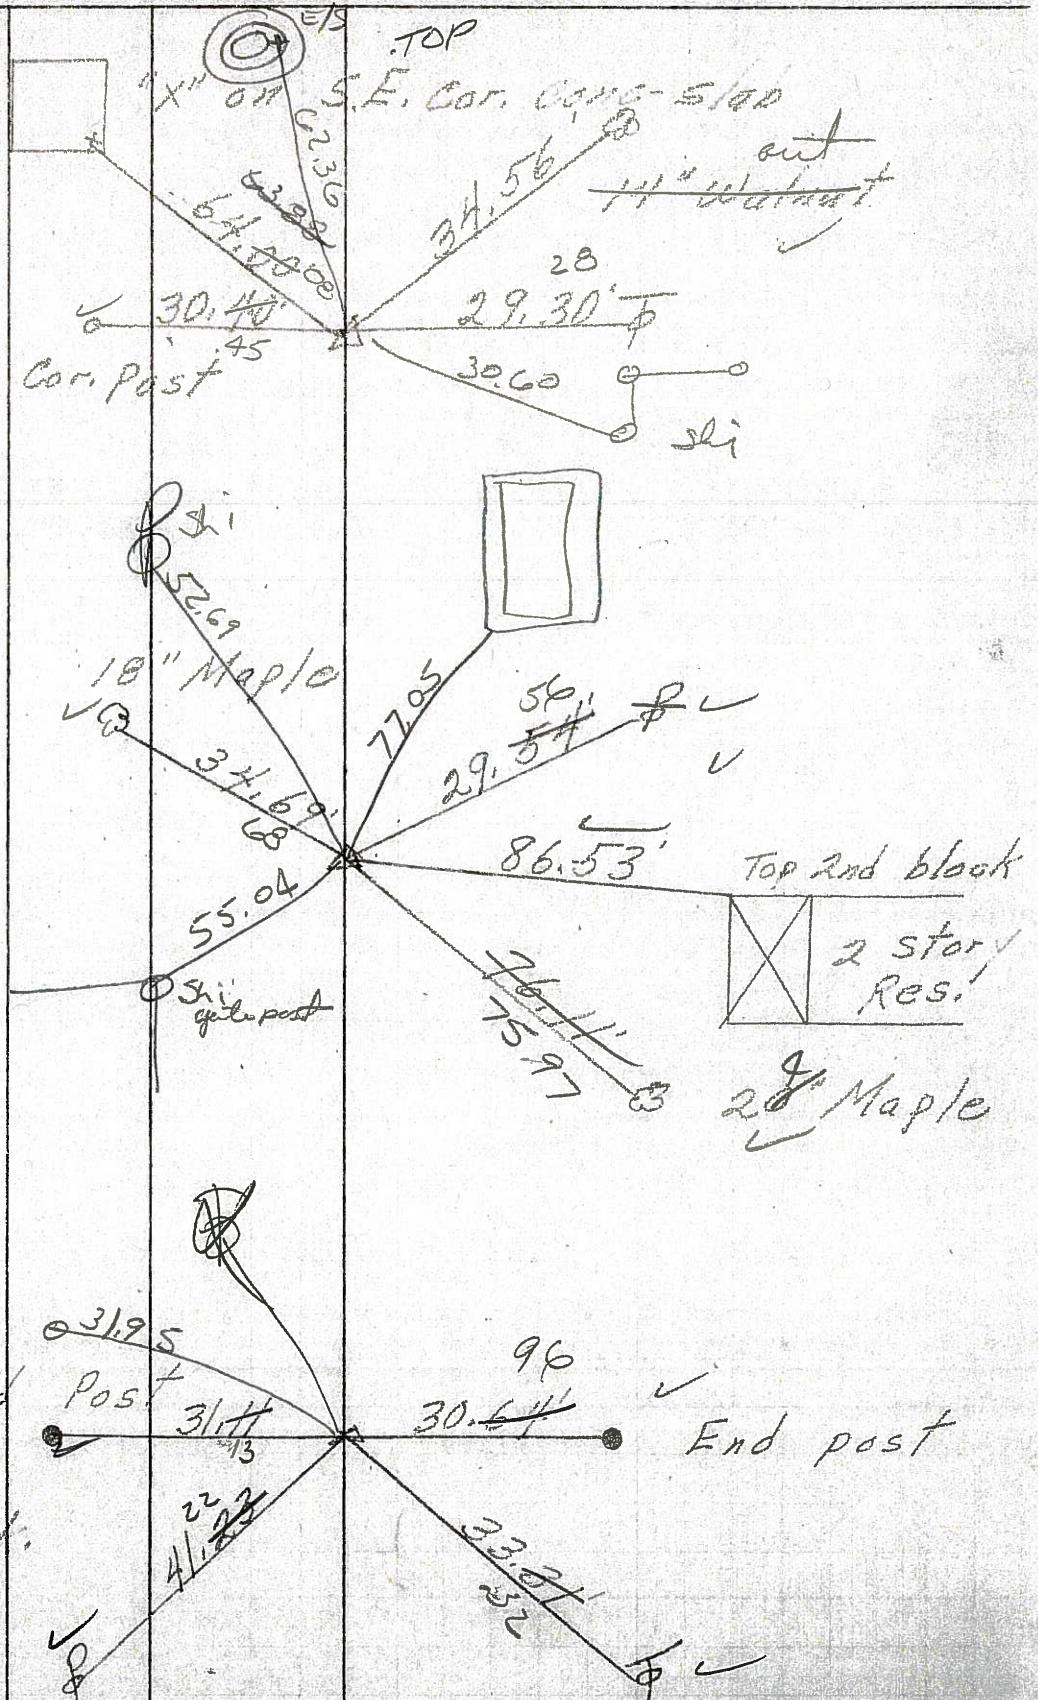 E/S
.TOP
"X" on S.E. Cor. conc. slab
out
14" Walnut
62.36
63.88
64.00 08
34.56
28
29.30'
30.40'
45
Cor. Post
30.60
Shi
Shi
52.69
18" Maple
77.05
56
29.54'
34.69'
68
86.53'
Top 2nd block
2 story
Res.
55.04
Shi
gate post
76.11'
75.97
Maple
31.95
Post
31.11
13
96
30.64'
End post
22
41.23
33.31'
32